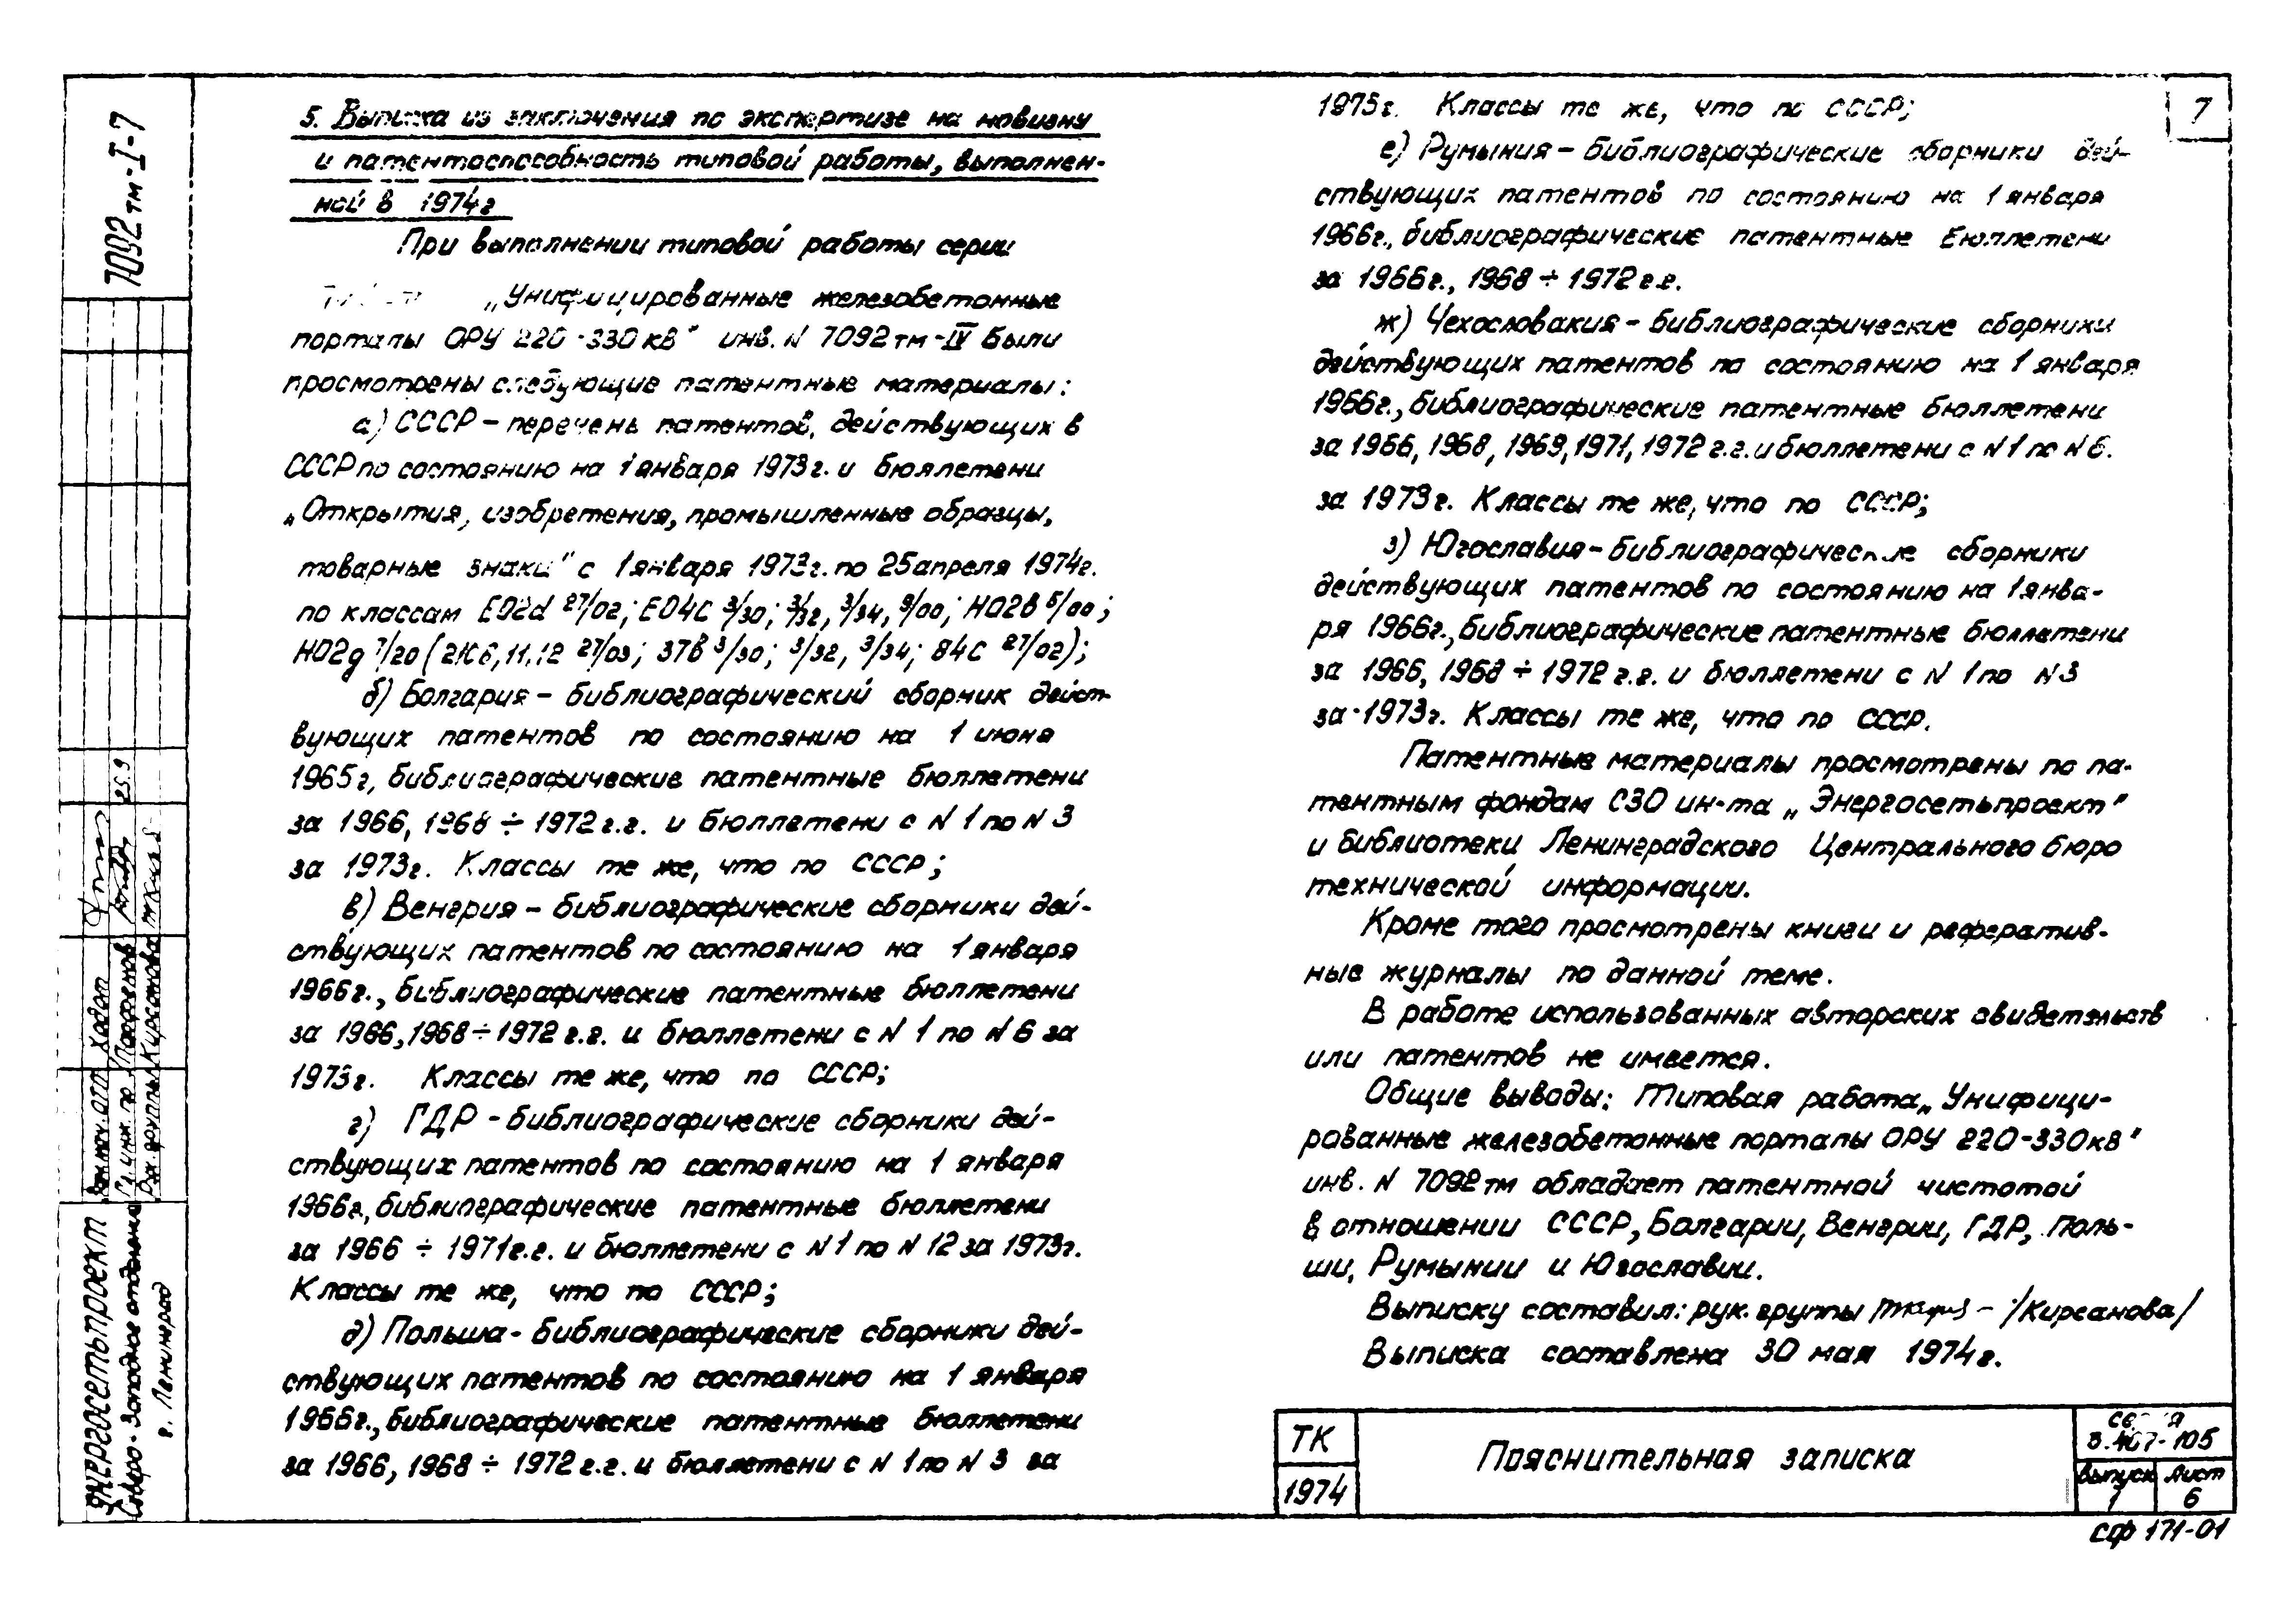 5. Выписка из заключения по экспертизе на новизну
и патентоспособность типовой работы, выполнен-
ной в 1974г
При выполнении типовой работы серии
„Унифицированные железобетонные
порталы ОРУ 220-330 кв" инв. N 7092тм-IV были
просмотрены следующие патентные материалы:
а) СССР – перечень патентов, действующих в
СССР по состоянию на 1 января 1973г. и бюллетени
„Открытия, изобретения, промышленные образцы,
товарные знаки" с 1 января 1973г. по 25 апреля 1974г.
по классам E02d 27/02; E04C 3/30; 3/32, 3/34, 9/00; H02B 5/00;
H02g 7/20 ( 27/03; 37в 3/30; 3/32, 3/34; 84C 27/02);
б) Болгария – библиографический сборник дейст-
вующих патентов по состоянию на 1 июня
1965г, библиографические патентные бюллетени
за 1966, 1968 ÷ 1972 г.г. и бюллетени с N 1 по N 3
за 1973г. Классы те же, что по СССР;
в) Венгрия – библиографические сборники дей-
ствующих патентов по состоянию на 1 января
1966г., библиографические патентные бюллетени
за 1966, 1968 ÷ 1972 г.г. и бюллетени с N 1 по N 6 за
1973г. Классы те же, что по СССР;
г) ГДР – библиографические сборники дей-
ствующих патентов по состоянию на 1 января
1966г., библиографические патентные бюллетени
за 1966 ÷ 1971г.г. и бюллетени с N 1 по N 12 за 1973г.
Классы те же, что по СССР;
д) Польша – библиографические сборники дей-
ствующих патентов по состоянию на 1 января
1966г., библиографические патентные бюллетени
за 1966, 1968 ÷ 1972 г.г. и бюллетени с N 1 по N 3 за
1973г. Классы те же, что по СССР;
е) Румыния – библиографические сборники дей-
ствующих патентов по состоянию на 1 января
1966г., библиографические патентные бюллетени
за 1966г., 1968 ÷ 1972 г.г.
ж) Чехословакия – библиографические сборники
действующих патентов по состоянию на 1 января
1966г., библиографические патентные бюллетени
за 1966, 1968, 1969, 1971, 1972 г.г. и бюллетени с N 1 по N 6.
за 1973г. Классы те же, что по СССР;
з) Югославия – библиографические сборники
действующих патентов по состоянию на 1 янва-
ря 1966г., библиографические патентные бюллетени
за 1966, 1968 ÷ 1972 г.г. и бюллетени с N 1 по N 3
за 1973г. Классы те же, что по СССР.
Патентные материалы просмотрены по па-
тентным фондам СЗО ин-та „Энергосетьпроект"
и библиотеки Ленинградского Центрального бюро
технической информации.
Кроме того просмотрены книги и рефератив-
ные журналы по данной теме.
В работе использованных авторских свидетельств
или патентов не имеется.
Общие выводы: Типовая работа „Унифици-
рованные железобетонные порталы ОРУ 220-330кв"
инв. N 7092тм обладает патентной чистотой
в отношении СССР, Болгарии, Венгрии, ГДР, Поль-
ши, Румынии и Югославии.
Выписку составил: рук. группы /Кирсанова/
Выписка составлена 30 мая 1974г.
7
7092тм-I-7
25.9
Ходот
Парфенов
Кирсанова
Зам.нач. ОТО
Гл. инж. пр.
Рук. группы
Энергосетьпроект
Северо-Западное отделение
г. Ленинград
ТК
1974
Пояснительная записка
серия
3.407-105
выпуск
1
лист
6
СФ 171-01